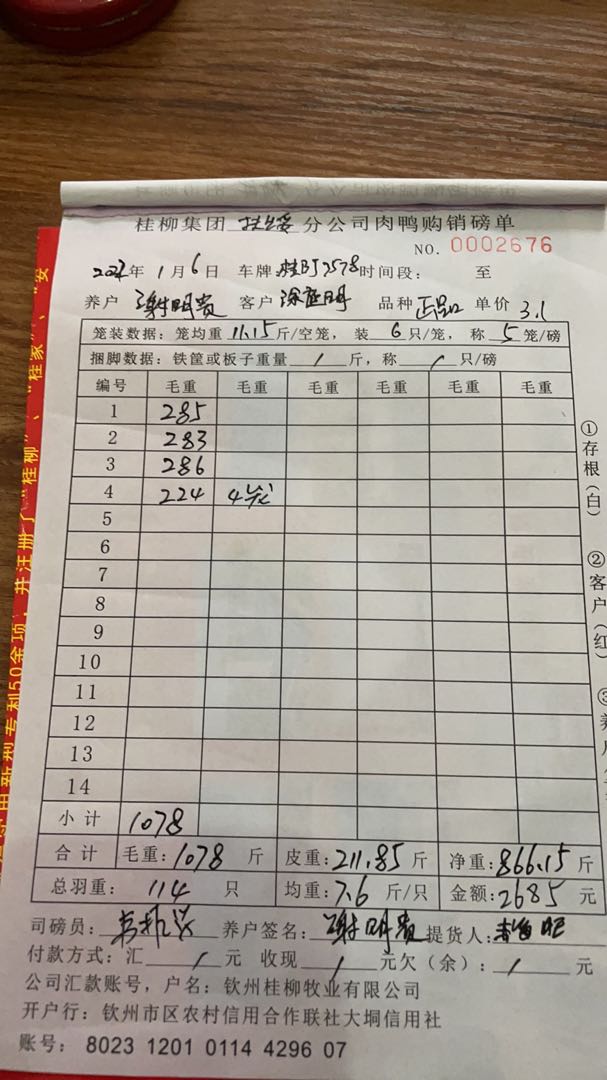 桂柳集团 扶绥 分公司肉鸭购销磅单
NO. 0002676
2022年 1月 6日 车牌 时间段： 至
养户 谢明贵 客户 品种 正品 单价 3.1
笼装数据：笼均重 11.15 斤/空笼， 装 6 只/笼， 称 5 笼/磅
捆脚数据：铁筐或板子重量 / 斤，称 / 只/磅
编号 毛重 毛重 毛重 毛重 毛重 毛重
1 285
2 283
3 286
4 224 4笼
5
6
7
8
9
10
11
12
13
14
小计 1078
合计 毛重：1078 斤 皮重：211.85 斤 净重：866.15 斤
总羽重： 114 只 均重：7.6 斤/只 金额：2685 元
司磅员： 养户签名：谢明贵 提货人：
付款方式：汇 / 元 收现 / 元欠（余）： / 元
公司汇款账号，户名：钦州桂柳牧业有限公司
开户行：钦州市区农村信用合作联社大垌信用社
账号： 8023 1201 0114 4296 07
①存根（白）
②客户（红）
③养
用新型专利50余项，并注册了“桂柳”、“桂家”、“安